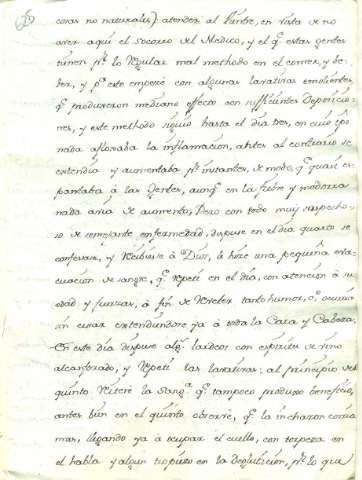 cosas no naturales) atender al vientre, en vista de no
aver aqui el socorro del Medico, y el qe. estas gentes
tienen pr. lo regular mal methodo en el comer, y be-
ber, y pa. este empecé con algunas laxativas emolientes,
qe. produxeron mediano effecto con sufficientes deposicio-
nes, y este methodo siguió hasta el dia tres, en cuio
nada afloxaba la inflamacion, antes al contrario se
extendia y aumentaba pr. instantes, de modo, qe. quasi es-
pantaba á las gentes, aunqe. en la fiebre y modorra
nada avia de aumento, Pero con todo muy sospecho-
so de semejante enfermedad, dispuse en el dia quarto se
confesase, y recibiese à Dios, le hice una pequeña eva-
cuacion de sangre, qe. repetí en el dia, con atencion á su
edad y fuerzas, à fin de tanto humor, qe.
sin cesar extendiendose ya à toda la Cara y Cabeza.
En este dia dispuse algs. laxdcos con espiritu de vino
alcanforado, y repetí las laxativas: al principio del
quinto reiteré la Sanga. qe. tampoco produxo beneficio,
antes bien en el quinto observé, qe. la inchazon corria
mas, llegando ya à ocupar el cuello, con torpeza en
el habla y algun tropiezo en la deglutición, pr. lo que